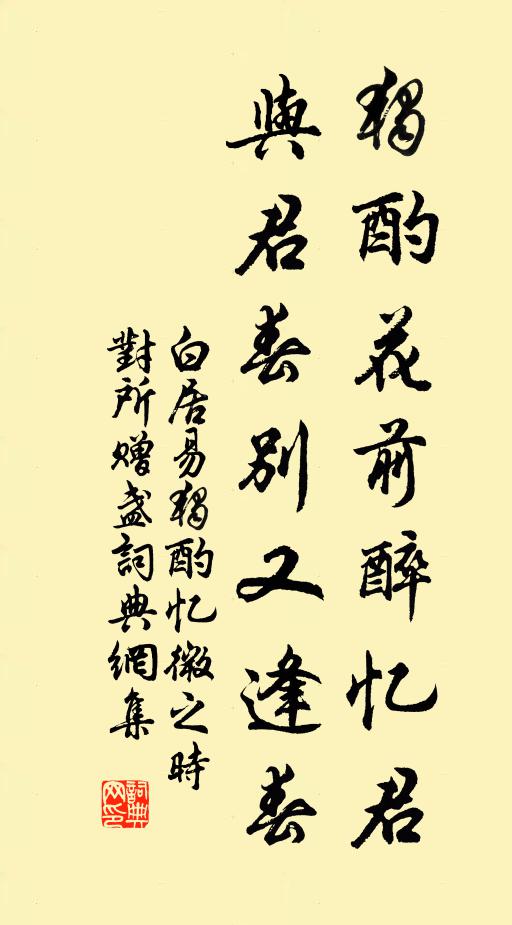 獨酌花前醉忆君
與君春別又逢春
白居易獨酌忆微之時
對所贈盞詞典網集
詞典网印